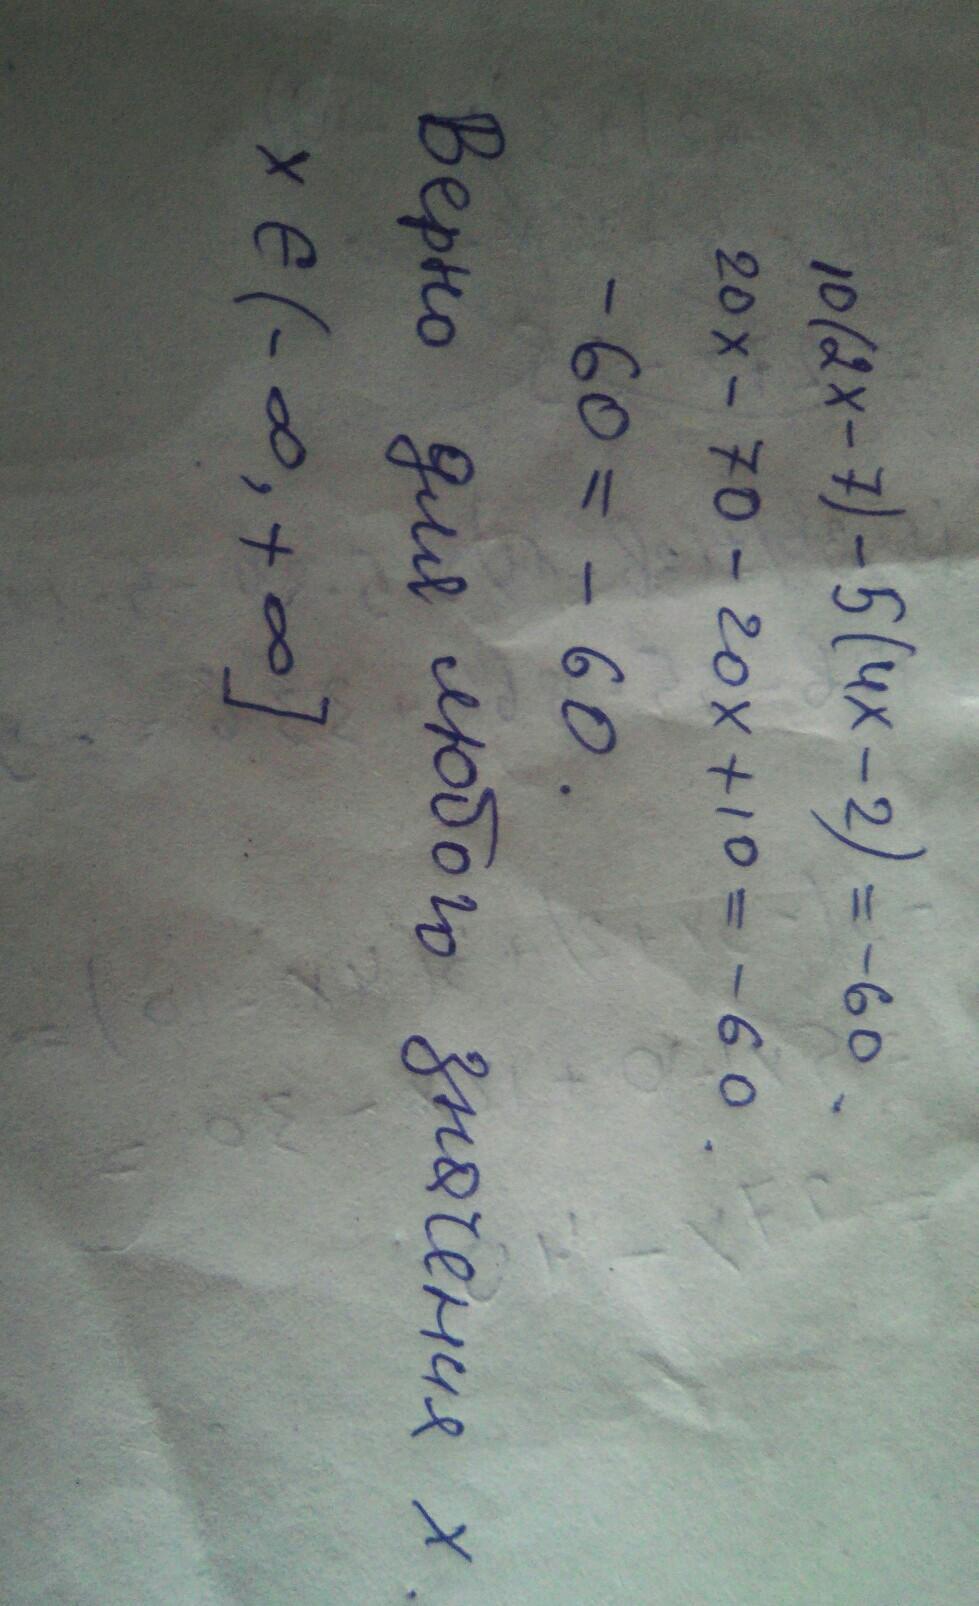 10(2x-7)-5(4x-2)=-60.
20x-70-20x+10=-60.
-60=-60.
Верно для любого значения x.
x∈(-∞,+∞]